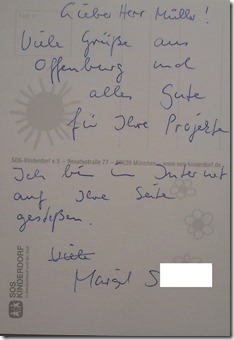 Lieber Herr Müller!
Viele Grüße aus
Offenburg und
alles Gute
für Ihre Projekte
SOS-Kinderdorf e.V. – Renatastraße 77 – 80639 München – www.sos-kinderdorf.de
Ich bin im Internet
auf Ihre Seite
gestoßen.
Viele
Margit S
SOS
KINDERDORF